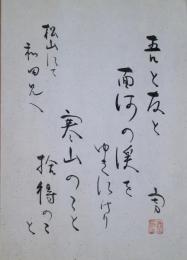 吾と友と
面河の渓を
ゆきにけり
寒山のこと
拾得のこと
松山にて
和田兄へ